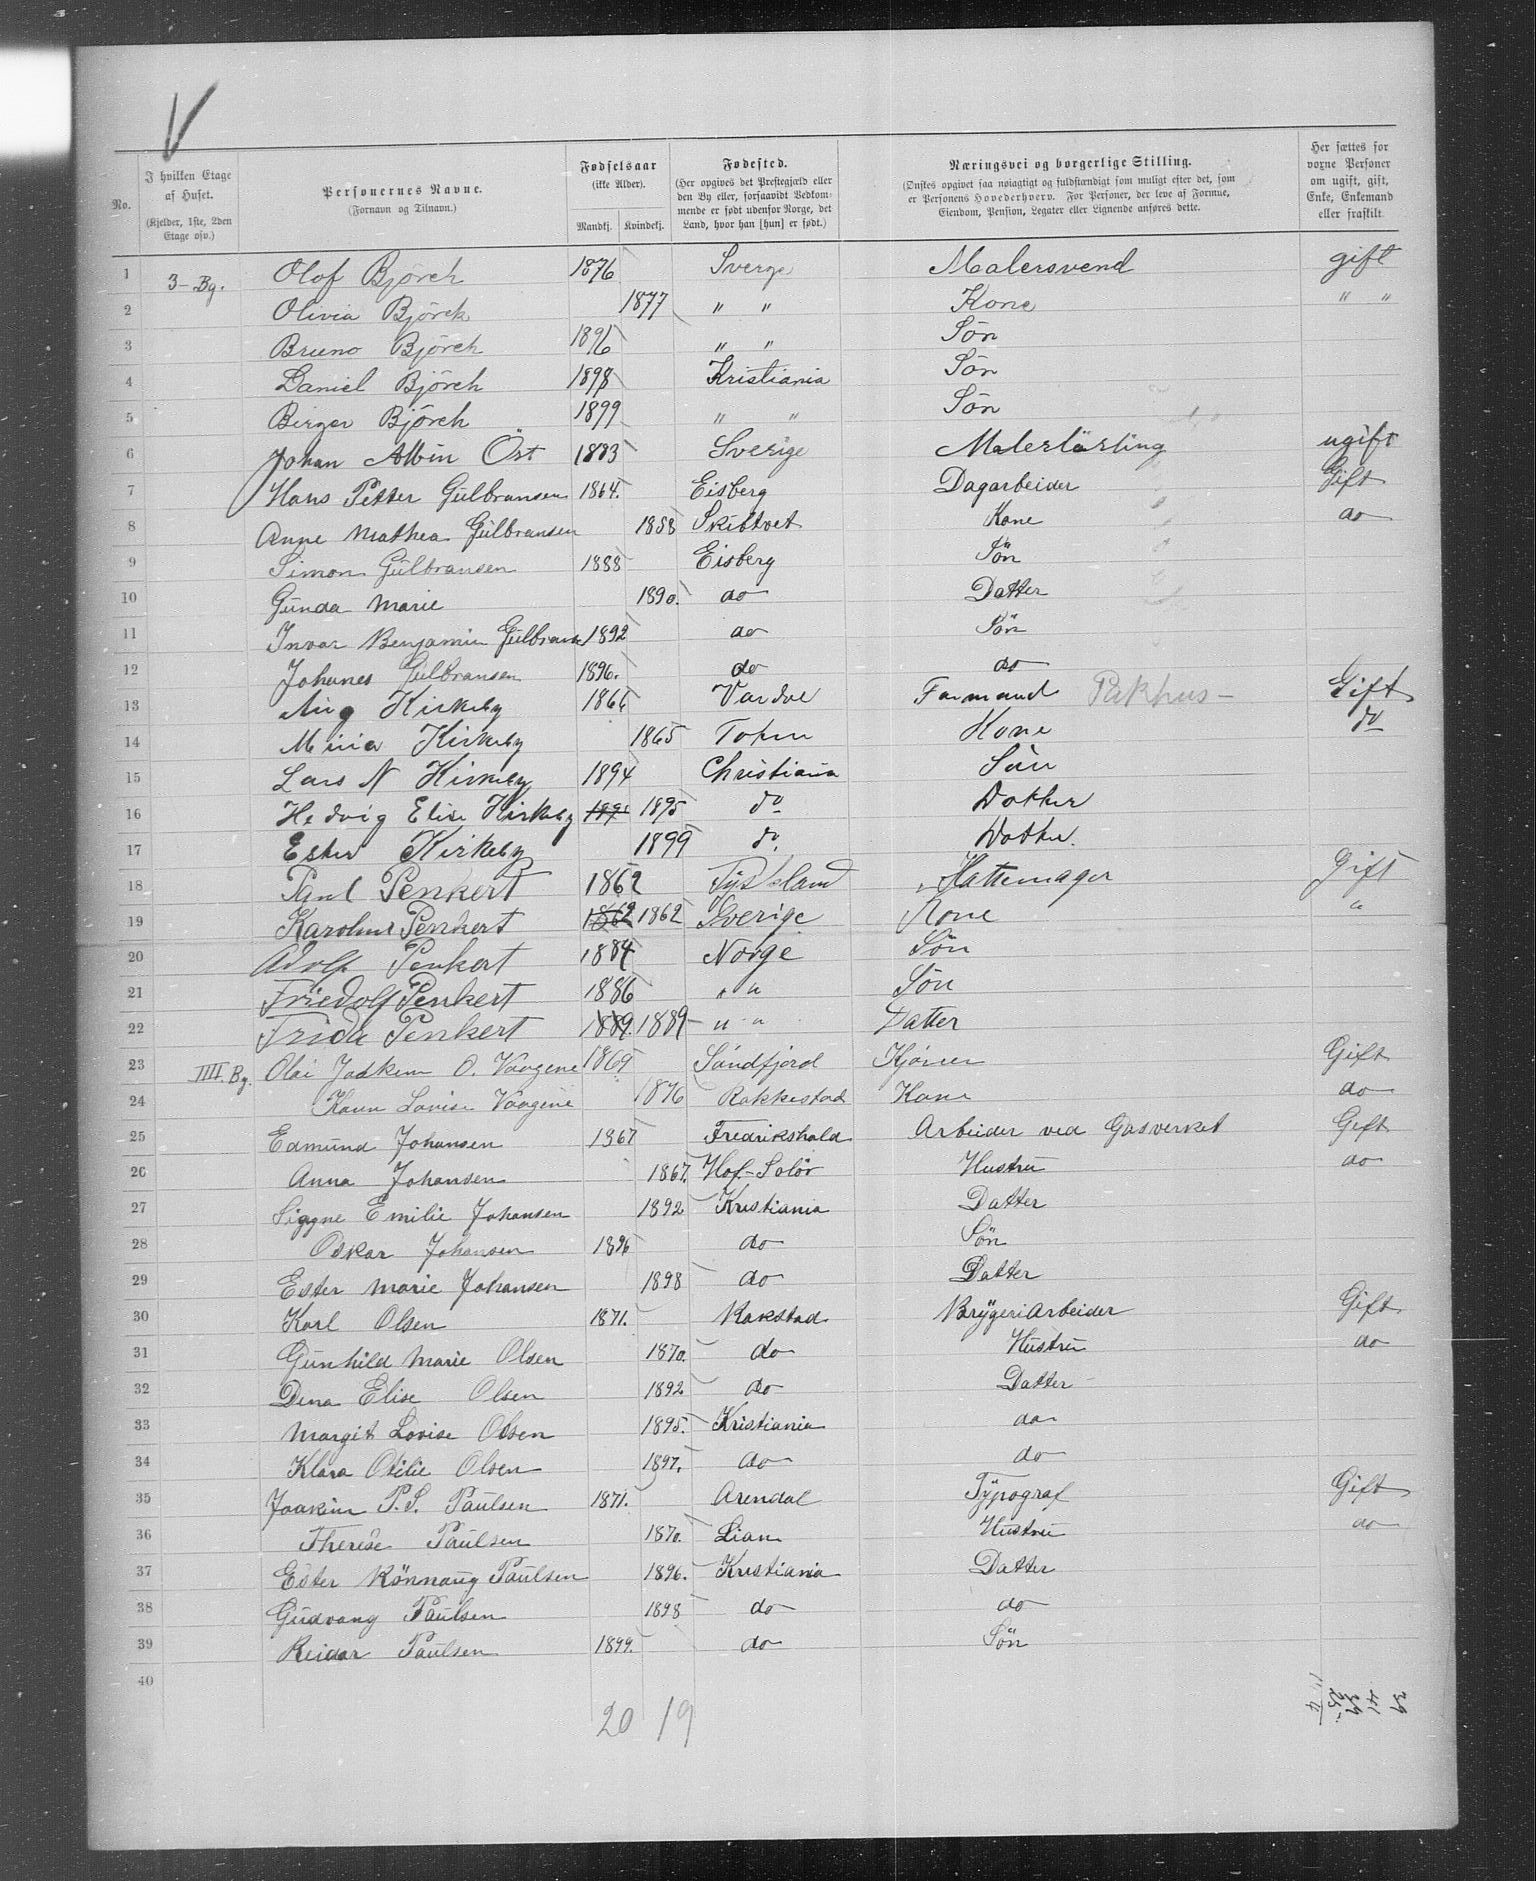 V
No.
I hvilken Etage af Huset.
(Kjelder, 1ste, 2den Etage osv.)
Personernes Navne.
(Fornavn og Tilnavn.)
Fødselsaar
(ikke Alder).
Mandkj. Kvindekj.
Fødested.
(Her opgives det Prestegjæld eller den By eller, forsaavidt Vedkommende er født udenfor Norge, det Land, hvor han [hun] er født.)
Næringsvei og borgerlige Stilling.
(Ønskes opgivet saa nøiagtigt og fuldstændigt som muligt efter det, som er Personens Hovederhverv. For Personer, der leve af Formue, Eiendom, Pension, Legater eller Lignende anføres dette.
Her sættes for voxne Personer om ugift, gift, Enke, Enkemand eller fraskilt.
1 3-Bg. Olof Björck 1876 Sverge Malersvend gift
2 Olivia Björck 1877 " " Kone " "
3 Bruno Björck 1896 " " Sön
4 Daniel Björck 1898 Kristiania Sön
5 Birger Björck 1899 " " Sön
6 Johan Albin Öst 1883 Sverige Malerlärling ugift
7 Hans Petter Gulbransen 1864. Eisberg Dagarbeider Gift
8 Anne Mathea Gulbransen 1858 Skibtvet Kone do
9 Simon Gulbransen 1888 Eisberg Sön
10 Gunda Marie 1890. do Datter
11 Invar Benjamin Gulbrans 1892 do Sön
12 Johanes Gulbransen 1896. do do
13 Aug Kirkeby 1866 Vardøe Formand Pakhus- Gift
14 Kirkeby 1865 Kone do
15 Lars N Kirkeby 1894 Christiania Sön
16 Hedvig Elise Kirkeby 1895 do Dotter
17 Ester Kirkeby 1899 do. Dotter.
18 Paul Penkert 1862 Tyskland Hattemager Gift
19 Karoline Penkert 1862 1862 Sverige Kone "
20 Adolf Penkert 1884 Norge Sön
21 Friedolf Penkert 1886 " " Sön
22 Frida Penkert 1889. 1889 " " Datter
23 IIII Bg. Olai Joakem O. Vaagene 1869 Söndfjord Kjörer Gift
24 Lovise Vaagene 1876 Rakkestad Kone do
25 Edmund Johansen 1867 Fredrikshald Arbeider ved Gasverket Gift
26 Anna Johansen 1867. Hof-Solör Hustru do
27 Siggne Emilie Johansen 1892 Kristiania Datter
28 Oskar Johansen 1896 do Sön
29 Ester Marie Johansen 1898 do Datter
30 Karl Olsen 1871. Rakstad Brygeriarbeider Gift
31 Gunhild Marie Olsen 1870. do Hustru do
32 Dena Elise Olsen 1892 do Datter
33 Margit Lovise Olsen 1895. Kristiania do
34 Klara Otilie Olsen 1897. do do
35 Joakim P. S. Paulsen 1871. Arendal Typograf Gift
36 Therese Paulsen 1870. Lian Hustru do
37 Ester Rönnaug Paulsen 1896. Kristiania Datter
38 Gudvang Paulsen 1898 do do
39 Reidar Paulsen 1899. do Sön
40
20 19
39
41